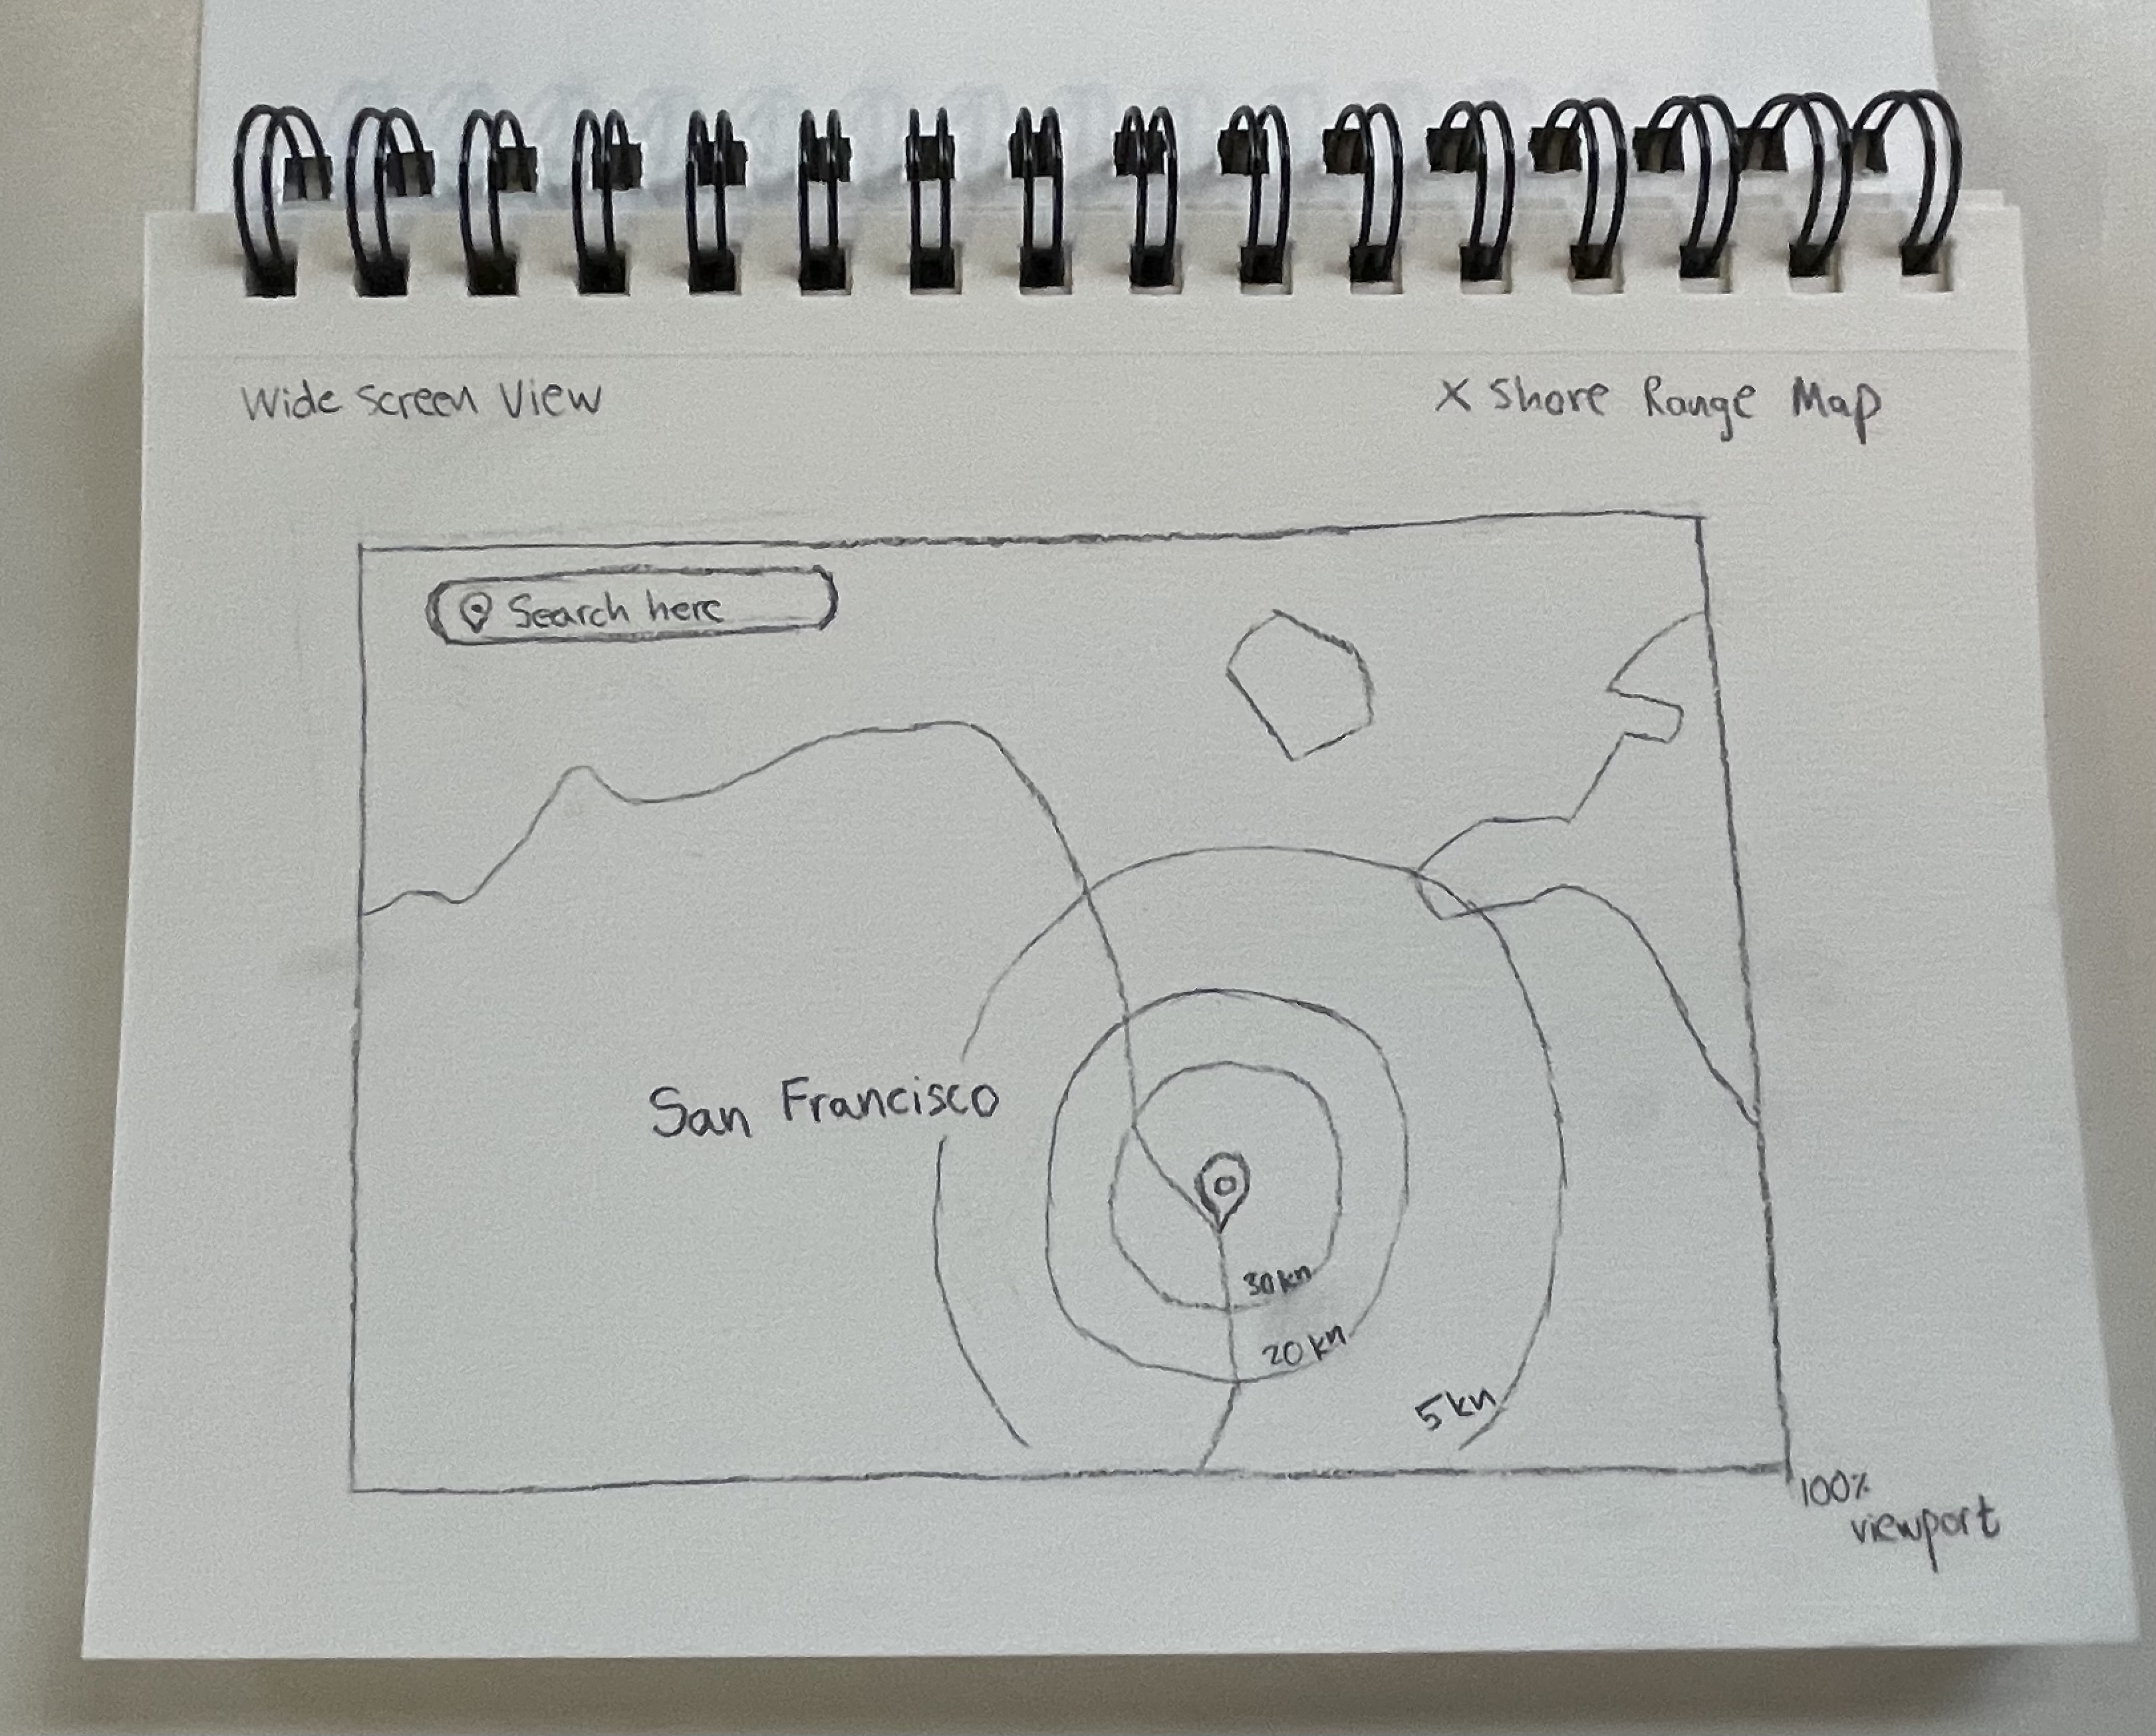 Wide Screen View
X Shore Range Map
Search here
San Francisco
30kn
20kn
5kn
100%
viewport